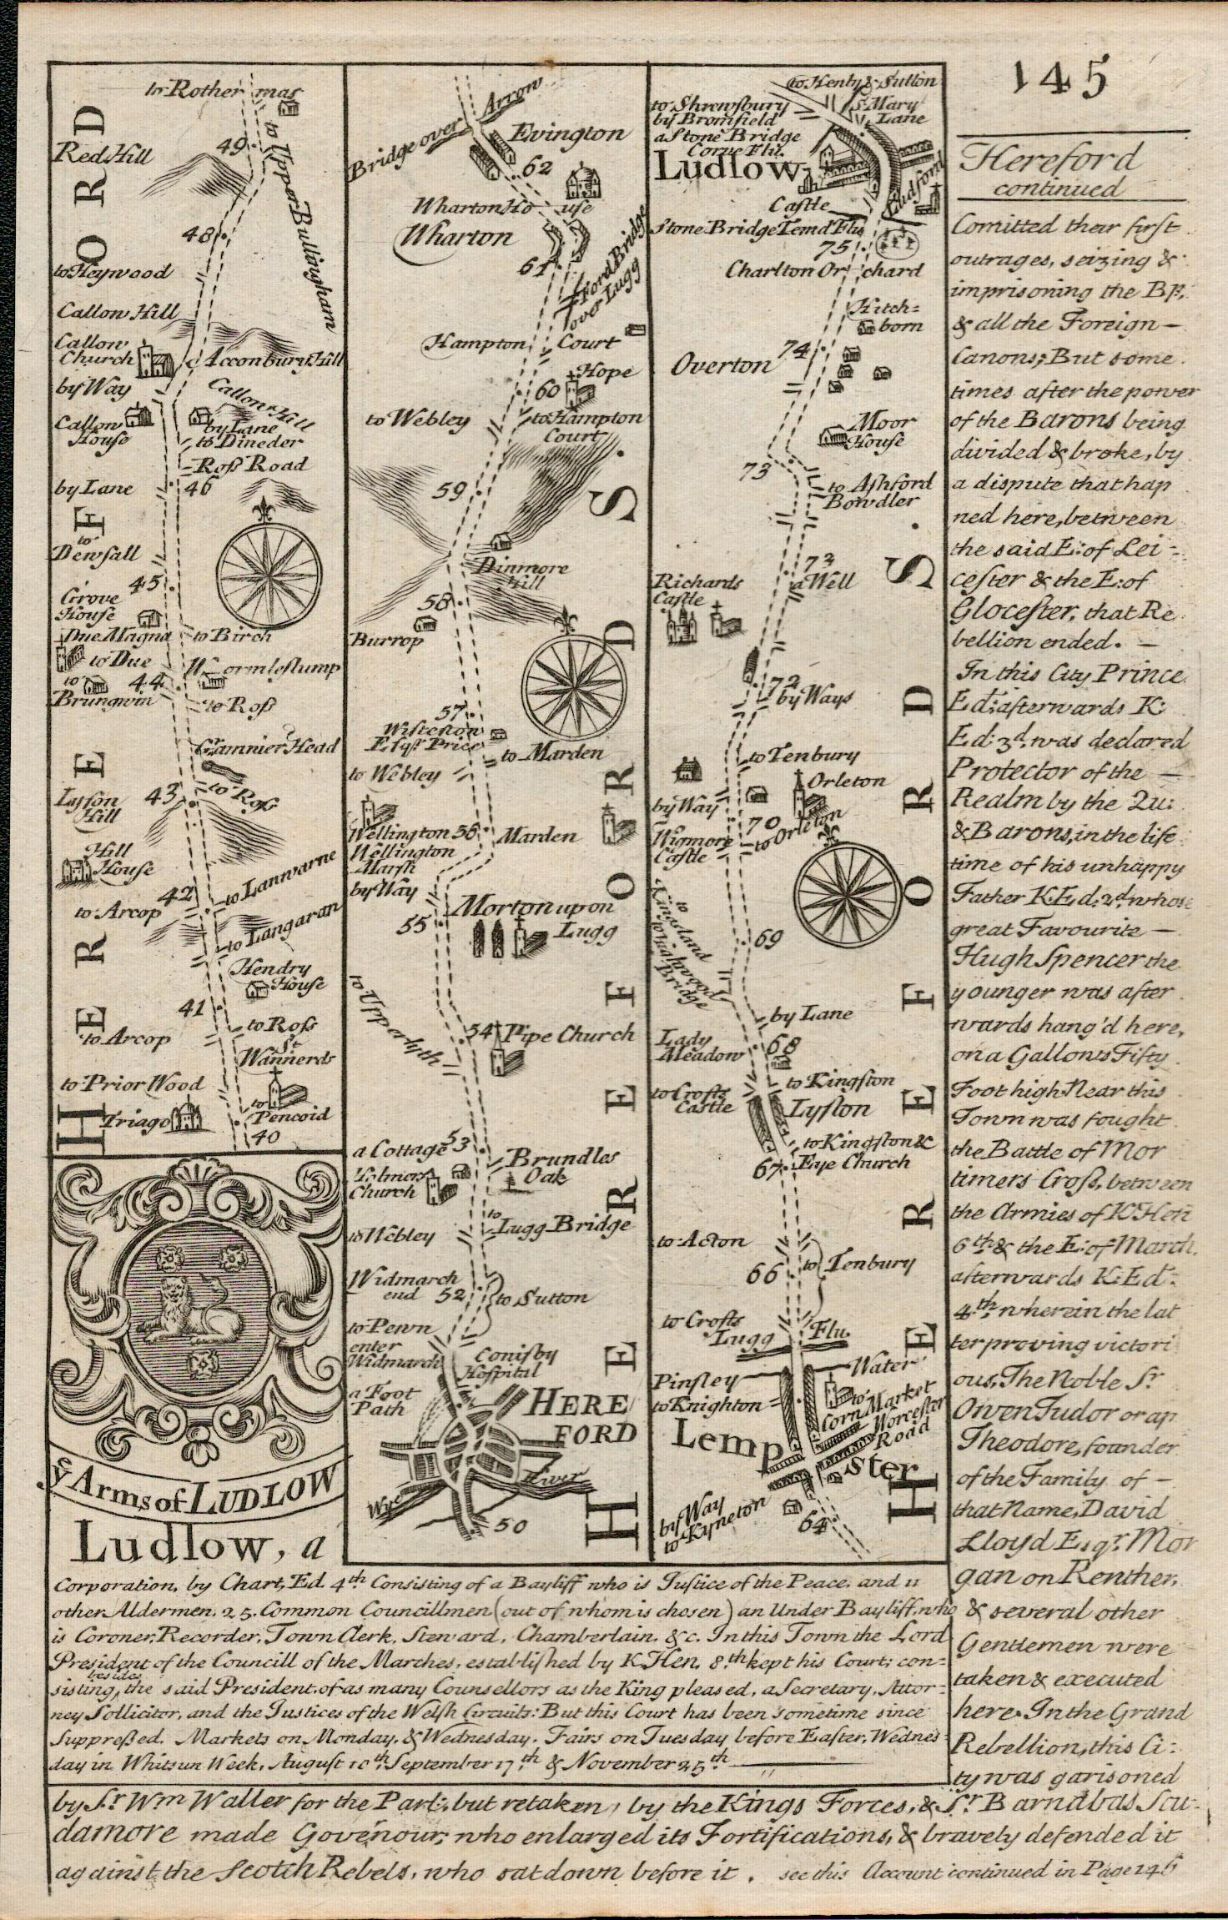 145
Hereford
continued
Comitted their first
outrages, seizing &
imprisoning the Bp.
& all the Foreign –
Canons; But some
times after the power
of the Barons being
divided & broke, by
a dispute that hap
ned here, between
the said E: of Lei -
cester & the E: of
Glocester, that Re
bellion ended. –
In this City Prince
Ed: afterwards K:
Ed: 3d. was declared
Protector of the –
Realm by the Qu:
& Barons, in the life
time of his unhappy
Father K: Ed: 2d. whose
great Favourite –
Hugh Spencer the
younger was after
wards hang'd here,
on a Gallows Fifty
Foot high. Near this
Town was fought
the Battle of Mor
timers Cross, between
the Armies of K. Hen
6th. & the E: of March,
afterwards K: Ed:
4th. wherein the lat
ter proving victori
ous, The Noble Sr.
Owen Tudor or ap
Theodore, founder
of the Family of –
that Name, David
Lloyd Esqr. Mor
gan on Renther,
& several other
Gentlemen were
taken & executed
here. In the Grand
Rebellion, this Ci:
ty was garisoned
by Sr. Wm Waller for the Parl:, but retaken, by the Kings Forces, & Sr. Barnabas Scu-
damore made Govenour, who enlarged its Fortifications, & bravely defended it
against the Scotch Rebels, who sat down before it. see this Account continued in Page 146
HEREFORD
to Rother mas
Red Hill
49
to Upper Bullingham
48
to Heywood
Callow Hill
Callow
Church
Acconbury Hill
by Way
Callow Hill
Callow
House
by Lane
to Dineder
Ross Road
by Lane
46
to
Dewsall
45
Grove
House
Due Magna
to Birch
to Due
Wormleslump
to
Brungwin
44
to Ross
Gamnier Head
Lyson
Hill
43
to Ross
Hill
House
42
to Lanwarne
to Arcop
to Langaran
Hendry
House
41
to Ross
to Arcop
St
Wannerds
to Prior Wood
Triago
to
Pencoid
40
ye Arms of LUDLOW
HEREFORDS.
Bridge over Arrow
Evington
62
Wharton House
Wharton
61
Ford Bridge
over Lugg
Hampton Court
Hope
60
to Webley
to Hampton
Court
59
Dinmore
Hill
58
Burrop
57
Wisteston
Esqr. Price
to Marden
to Webley
Wellington
56
Marden
Wellington
Marsh
by Way
Morton upon
Lugg
55
to Upperlyth
54
Pipe Church
a Cottage
53
Brundles
Oak
Holmor
Church
to
Lugg Bridge
to Webley
Widmarch
end
52
to Sutton
to Pewn
enter
Widmarch
Conisby
Hospital
a Foot
Path
HERE
FORD
Wye
River
50
HEREFORDS.
to Henly & Sutton
to Shrewsbury
by Bromfield
St Mary
Lane
a Stone Bridge
Corve Flu.
Ludlow
Ludford
Castle
Stone Bridge Temd Flu
75
Charlton Orchard
Hitch=
born
74
Overton
Moor
House
73
to Ashford
Bowdler
73
a Well
Richards
Castle
72
by Ways
to Tenbury
Orleton
by Way
70
to Orleton
to
Wigmore
Castle
to
Kingsland
69
by Lane
Lady
Meadow
68
to Kingston
to Crofts
Castle
Lyston
to Kingston &
67
Eye Church
to Acton
66
to Tenbury
to Crofts
Lugg Flu.
Water
Pinsley
to
Corn Market
to Knighton
Worcester
Road
Lempster
by Way
to Kyneton
64
Ludlow, a
Corporation, by Chart, Ed. 4th. Consisting of a Bayliff who is Justice of the Peace, and 11
other Aldermen, 25. Common Councillmen (out of whom is chosen) an Under Bayliff, who
is Coroner, Recorder, Town Clerk, Steward, Chamberlain, &c. In this Town the Lord
President of the Councill of the Marches, established by K. Hen. 8.th kept his Court: con=
sisting, besides the said President, of as many Counsellors as the King pleased, a Secretary, Attor=
ney Sollicitor, and the Justices of the Welsh Circuits: But this Court has been sometime since
Suppressed. Markets on Monday, & Wednesday. Fairs on Tuesday before Easter, Wednes-
day in Whitsun Week, August 10th. September 17th. & November 25th